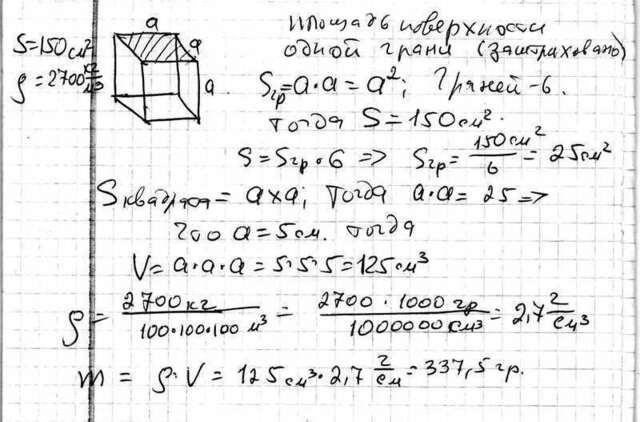 a
a
a
S=150см²
ρ=2700 кг/м³
площадь поверхности
одной грани (заштриховано)
Sгр=a·a=a²; Граней-6.
тогда S=150см².
S=Sгр·6 => Sгр=150см²/6=25см²
Sквадрата=a×a; тогда a·a=25=>
что a=5см. тогда
V=a·a·a=5·5·5=125см³
ρ=2700кг/100·100·100 м³=2700·1000гр/1000000см³=2,7г/см³
m=ρ·V=125см³·2,7г/см=337,5гр.